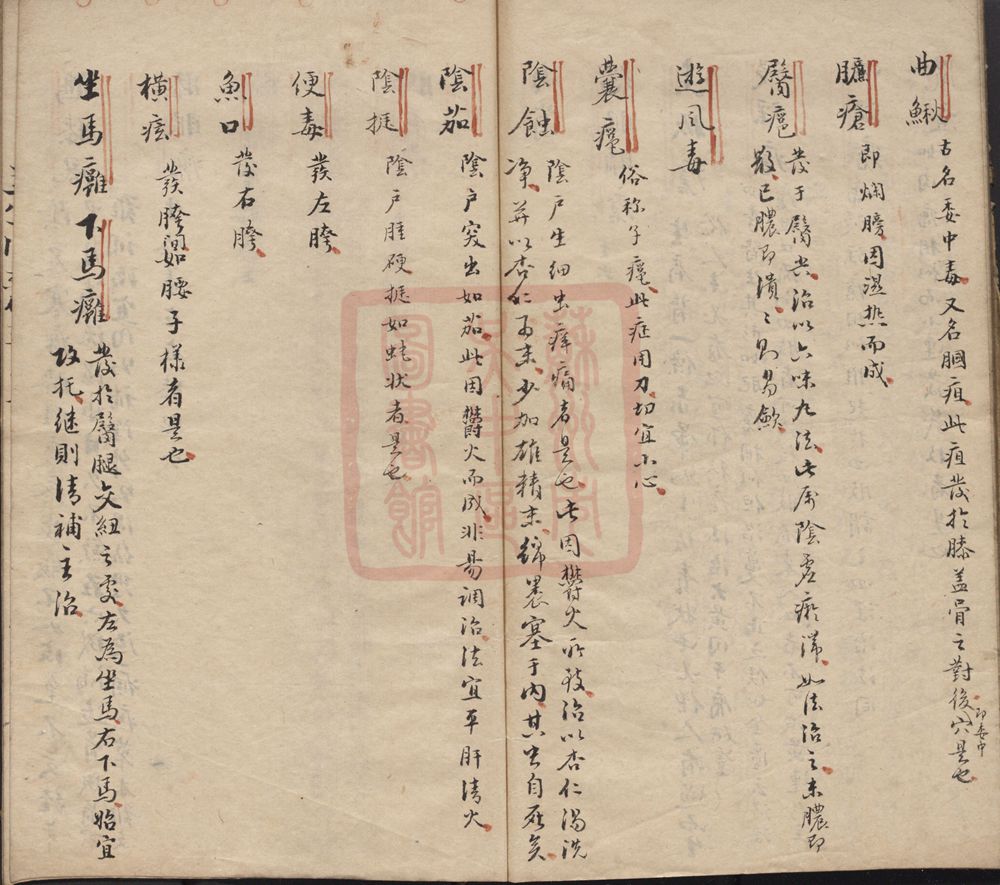 曲鰍 古名委中毒又名膕疽此疽發於膝蓋骨之對後穴是也
即委中
臁瘡 即爛膀因濕热而成
臀㾴 發于臀尖治以六味丸法此属陰虚瘀滞如法治之未膿即
散已膿即潰〻則易歛
遊風毒
囊㾴 俗称子㾴此症用刀切宜小心
陰蝕 陰户生细虫痒痛者是也此因欝火所致治以杏仁湯洗
净并以杏仁為末少加雄精末綿裹塞于内其虫自死矣
陰茄 陰户突出如茄此因欝火而成非易調治法宜平肝清火
陰挺 陰户腫硬挺如蛇状者是也
便毒 發左胯
魚口 發右胯
橫痃 發胯間如腰子樣者是也
坐馬癰下馬癰 發於臀腿交紐之處左為坐馬右下馬始宜
攻托继則清補主治
蘇州市吳中區圖書館